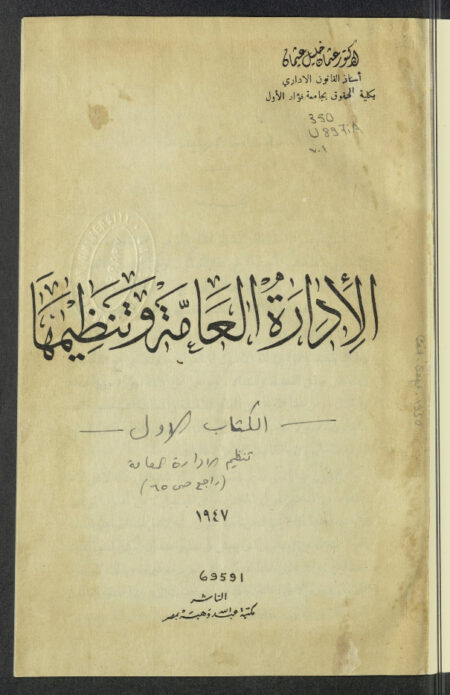 الدكتور عثمان خليل عثمان
أستاذ القانون الاداري
بكلية الحقوق بجامعة فؤاد الأول
350
U897iA
الإدارة العامة وتنظيمها
الكتاب الاول
تنظيم الادارة العامة
(راجع ص ٦٥)
١٩٤٧
69591
الناشر
مكتبة عبد الله وهبة بمصر